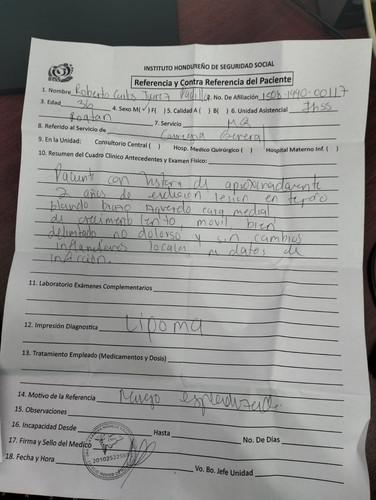 INSTITUTO HONDUREÑO DE SEGURIDAD SOCIAL
Referencia y Contra Referencia del Paciente
1. Nombre Roberto Carlos Padilla 2. No. De Afiliación 1504-1990-00117
3. Edad 36 4. Sexo M(✓) F( ) 5. Calidad A ( ) B( ) 6. Unidad Asistencial Ihss
Roatan 7. Servicio MQ
8. Referido al Servicio de General
9. En la Unidad: Consultorio Central ( ) Hosp. Medico Quirúrgico ( ) Hospital Materno Inf. ( )
10. Resumen del Cuadro Clínico Antecedentes y Examen Físico:
Paciente con historia de aproximadamente
2 años de evolucion lesion en tejido
blando brazo izquierdo cara medial
de crecimiento lento, movil bien
delimitado no doloroso y sin cambios
inflamatorios locales ni datos de
infección.
11. Laboratorio Exámenes Complementarios
12. Impresión Diagnostica Lipoma
13. Tratamiento Empleado (Medicamentos y Dosis)
14. Motivo de la Referencia Manejo especializado
15. Observaciones:
16. Incapacidad Desde Hasta No. De Días
17. Firma y Sello del Medico
18. Fecha y Hora Vo. Bo. Jefe Unidad